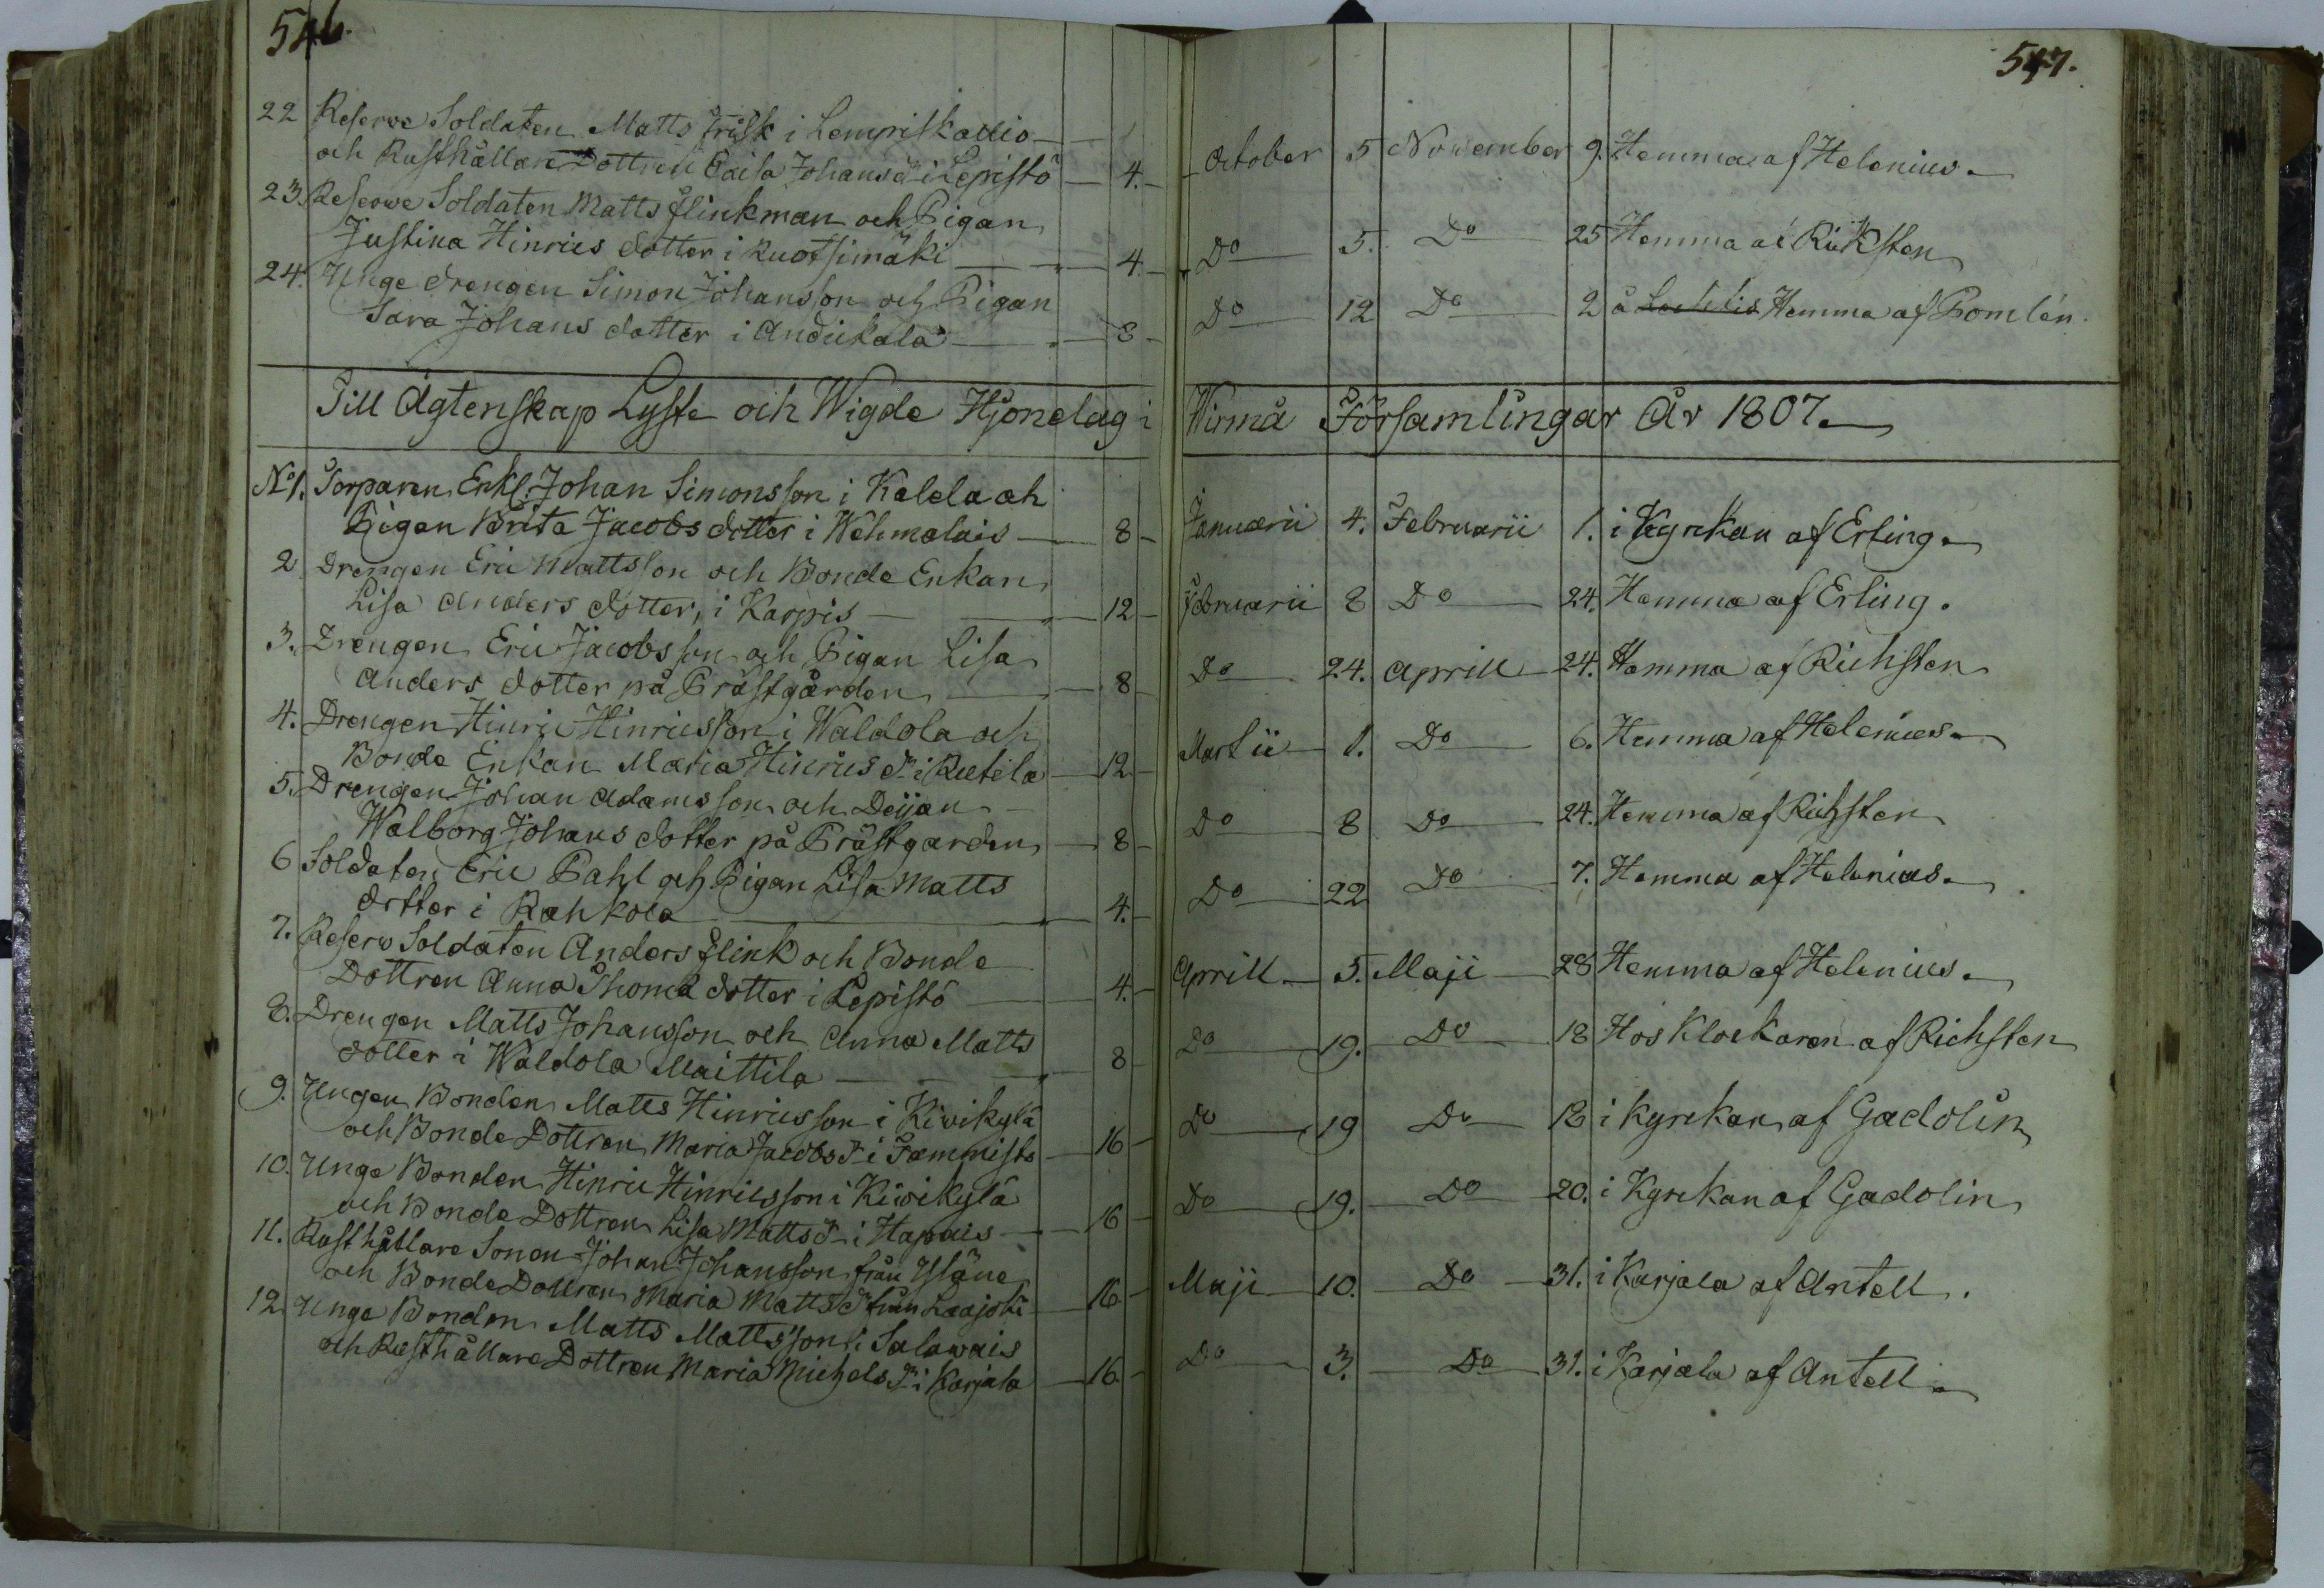 546.
22 Reserve Soldaten Matts Frisk i Lempriskallio
och Rusthållare Dottren Caisa Johans dr i Lepistö — 4.
23. Reserve Soldaten Matts Flinkman och Pigan
Justina Hinrics dotter i Ruotsimäki — 4.
24. Unge drengen Simon Johansson och Pigan
Sara Johans dotter i Andikala — 8
Till Ägtenskap Lyste och Wigde Hjonelag i
No 1. Torparen Enkl. Johan Simonsson i Kalela och
Pigan Brita Jacobs dotter i Wehmalais — 8
2. Drengen Eric Mattsson och Bonde Enkan
Lisa Anders dotter, i Karpis — 12
3. Drengen Eric Jacobsson och Pigan Lisa
Anders dotter på Prästgården — 8
4. Drengen Hinric Hinricsson i Waldola och
Bonde Enkan Maria Hinrics dr i Rutila — 12
5. Drengen Johan Adamsson och Deijan
Walborg Johans dotter på Prästgården — 8
6 Soldaten Eric Pahl och Pigan Lisa Matts
dotter i Rahkola — 4.
7. Reserv Soldaten Anders Flink och Bonde
Dottren Anna Thoma dotter i Lepistö — 4.
8. Drengen Matts Johansson och Anna Matts
dotter i Waldola Maittila — 8
9. Ungen Bonden Matts Hinricsson i Kivikylä
och Bonde Dottren Maria Jacobs dr i Tammisto — 16
10. Unge Bonden Hinric Hinricsson i Kiwikylä
och Bonde Dottren Lisa Matts dr i Hapais — 16
11. Rusthållare Sonen Johan Johansson från Yläne
och Bonde Dottren Maria Matts dr från Laajoki — 16
12 Unge Bonden Matts Mattsson i Salawais
och Rusthållare Dottren Maria Michels dr i Karjala — 16
547.
October 5 November 9. Hemma af Helenius.
Do 5. Do 25 Hemma af Richsten
Do 12 Do 2 å Hemma af Pomlén.
Wirmå Församlingar År 1807.
Januarii 4. Februarii 1. i Kyrkan af Erling.
Februarii 8 Do 24. Hemma af Erling.
Do 24. Aprill 24. Hemma af Richsten
Martii 1. Do 6. Hemma af Helenius.
Do 8 Do 24. Hemma af Richsten
Do 22 Do 7. Hemma af Helenius.
Aprill 5. Maji 28 Hemma af Helenius.
Do 19. Do 18 Hos Klockaren af Richsten
Do 19 Do 18 i Kyrkan af Gadolin
Do 19. Do 20. i Kyrkan af Gadolin
Maji 10. Do 31. i Karjala af Antell.
Do 3. Do 31. i Karjala af Antell.